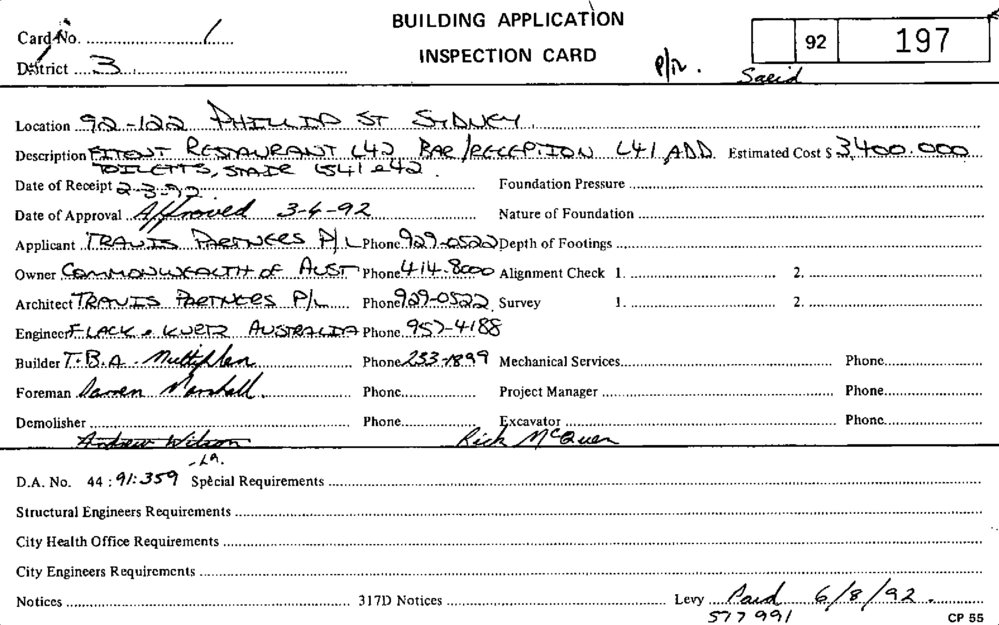 BUILDING APPLICATION
INSPECTION CARD
Card No. 1
District 3
P/R.
92 197
Saeid
Location 92-122 PHILLIP ST SYDNEY.
Description FITOUT RESTAURANT L42 BAR/RECEPTION L41, ADD Estimated Cost $ 3,400.000
TOILETTS, STAIR L541 & 42.
Date of Receipt 2-3-92 Foundation Pressure
Date of Approval Approved 3-6-92 Nature of Foundation
Applicant TRAVIS PARTNERS P/L Phone 929-0522 Depth of Footings
Owner COMMONWEALTH OF AUST Phone 414-8000 Alignment Check 1. 2.
Architect TRAVIS PARTNERS P/L Phone 929-0522 Survey 1. 2.
Engineer FLACK & KURTZ AUSTRALIA Phone 957-4188
Builder T.B.A. Multiplex Phone 233-1899 Mechanical Services Phone
Foreman Darren Marshall. Phone Project Manager Phone
Demolisher Phone Excavator Phone
Andrew Wilson Rick McQuen
-LA.
D.A. No. 44 : 91:359 Special Requirements
Structural Engineers Requirements
City Health Office Requirements
City Engineers Requirements
Notices 317D Notices Levy Paid 6/8/92.
577991 CP 55